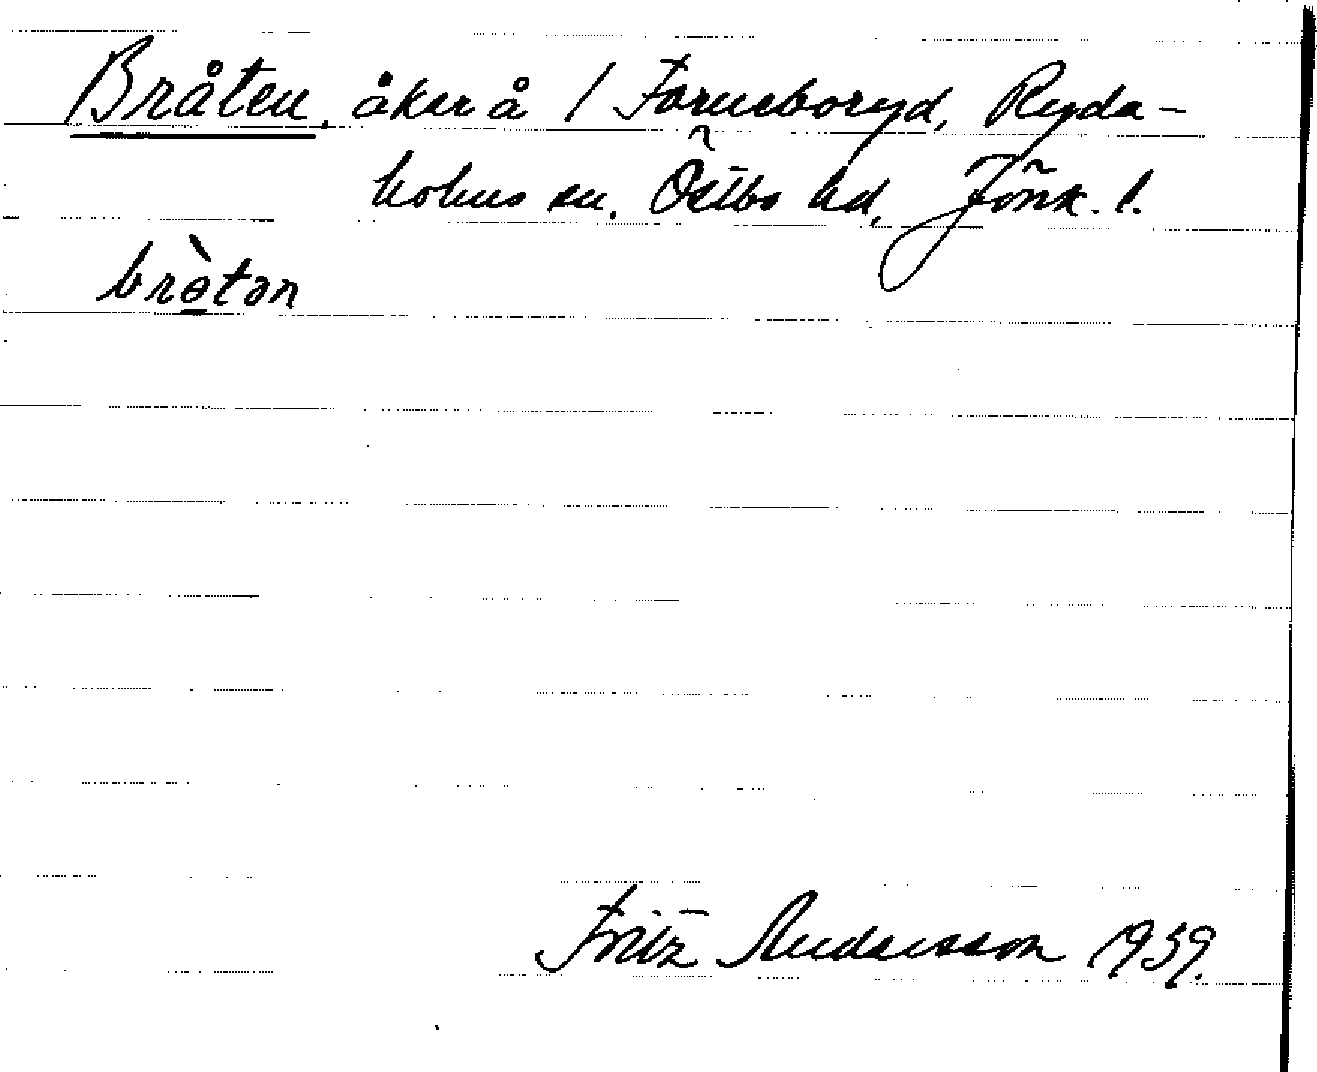 Bråten, åker å / Forneboryd, Ryda-
hohus sn. Östbo hd, Jönk. l.
brò̱tən
Fritz Andersson 1939.